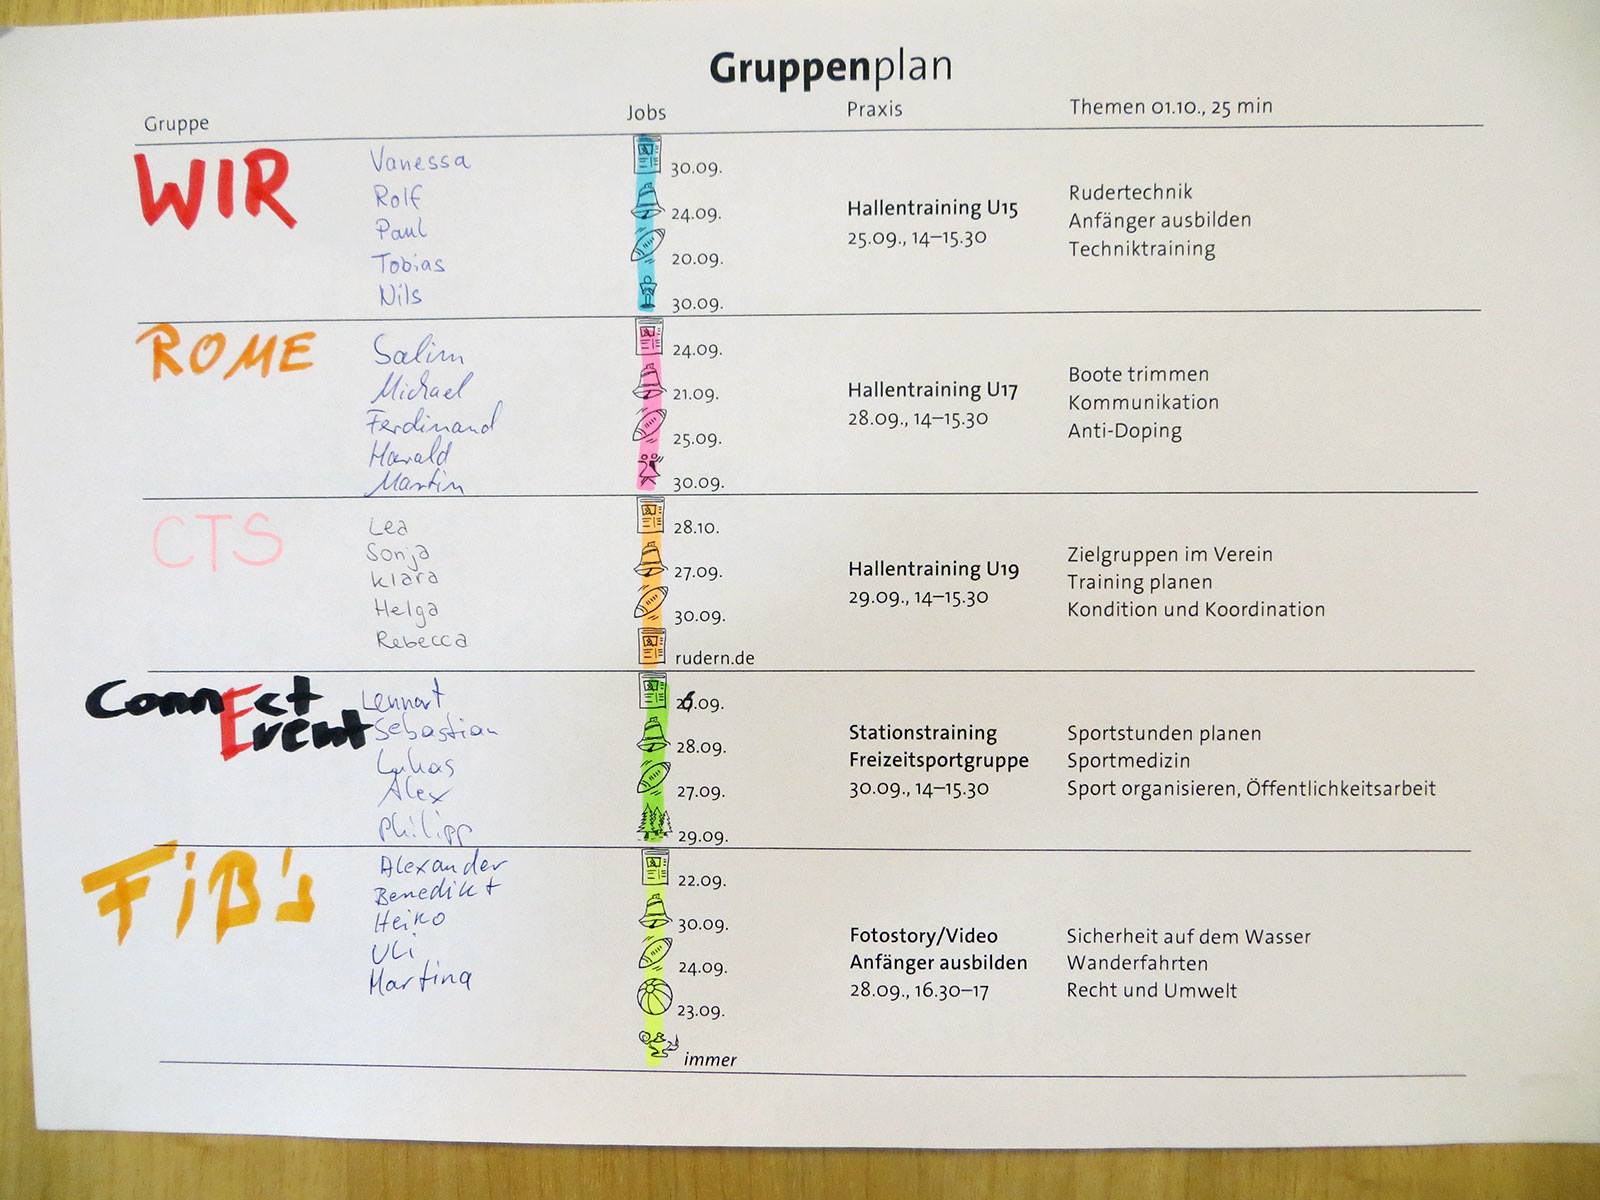 Gruppenplan
Gruppe Jobs Praxis Themen 01.10., 25 min
WIR
Vanessa
Rolf
Paul
Tobias
Nils
30.09.
24.09.
20.09.
30.09.
Hallentraining U15
25.09., 14–15.30
Rudertechnik
Anfänger ausbilden
Techniktraining
ROME
Salim
Michael
Ferdinand
Harald
Martin
24.09.
21.09.
25.09.
30.09.
Hallentraining U17
28.09., 14–15.30
Boote trimmen
Kommunikation
Anti-Doping
CTS
Lea
Sonja
Klara
Helga
Rebecca
28.10.
27.09.
30.09.
rudern.de
Hallentraining U19
29.09., 14–15.30
Zielgruppen im Verein
Training planen
Kondition und Koordination
ConnEct
Event
Lennart
Sebastian
Lukas
Alex
Philipp
26.09.
28.09.
27.09.
29.09.
Stationstraining
Freizeitsportgruppe
30.09., 14–15.30
Sportstunden planen
Sportmedizin
Sport organisieren, Öffentlichkeitsarbeit
FiB's
Alexander
Benedikt
Heiko
Uli
Martina
22.09.
30.09.
24.09.
23.09.
immer
Fotostory/Video
Anfänger ausbilden
28.09., 16.30–17
Sicherheit auf dem Wasser
Wanderfahrten
Recht und Umwelt